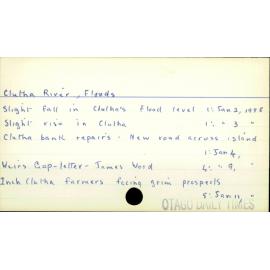 Clutha River, Floods
Slight fall in Clutha's flood level 1: Jan 2, 1958
Slight rise in Clutha 1: " 3 "
Clutha bank repairs - New road across island
1: Jan 4,
Weirs Gap-letter - James Word 4: " 9, "
Inch Clutha farmers facing grim prospects
5: Jan 11, "
OTAGO DAILY TIMES